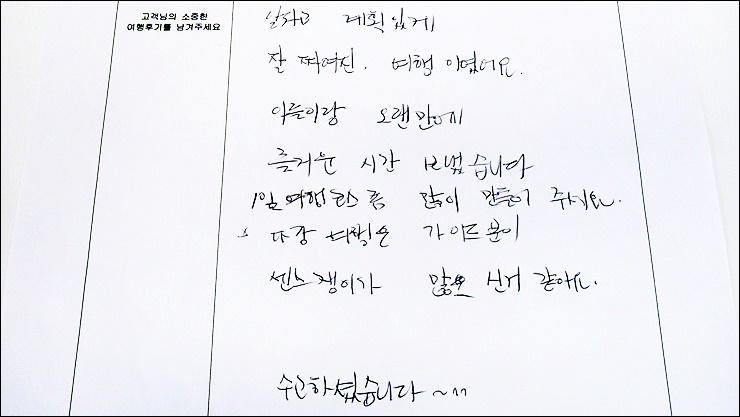 고객님의 소중한
여행후기를 남겨주세요
알차고 계획있게
잘 짜여진. 여행 이였어요.
아들이랑 오랜만에
즐거운 시간 보냈습니다
1일 여행코스 좀 많이 만들어 주세요.
여행은 가이드분이
센스쟁이가 많으신거 같아요.
수고하셨습니다~^^